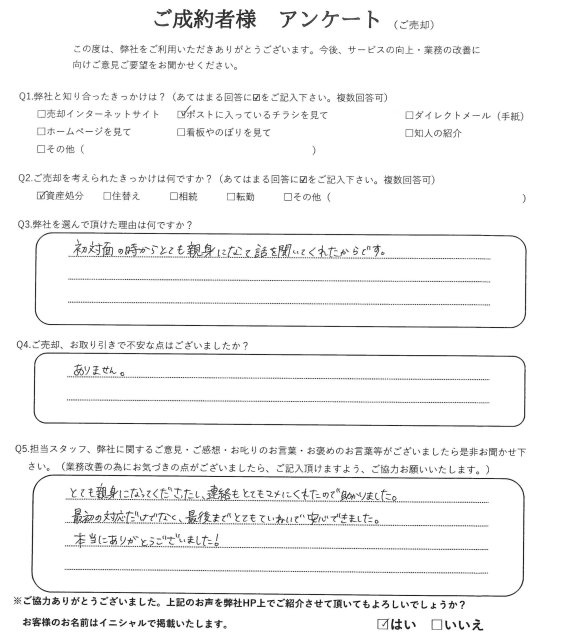 ご成約者様　アンケート（ご売却）
この度は、弊社をご利用いただきありがとうございます。今後、サービスの向上・業務の改善に
向けご意見ご要望をお聞かせください。
Q1.弊社と知り合ったきっかけは？（あてはまる回答に☑をご記入下さい。複数回答可）
□売却インターネットサイト　☑ポストに入っているチラシを見て　□ダイレクトメール（手紙）
□ホームページを見て　□看板やのぼりを見て　□知人の紹介
□その他（　）
Q2.ご売却を考えられたきっかけは何ですか？（あてはまる回答に☑をご記入下さい。複数回答可）
☑資産処分　□住替え　□相続　□転勤　□その他（　）
Q3.弊社を選んで頂けた理由は何ですか？
初対面の時からとても親身になって話を聞いてくれたからです。
Q4.ご売却、お取り引きで不安な点はございましたか？
ありません。
Q5.担当スタッフ、弊社に関するご意見・ご感想・お叱りのお言葉・お褒めのお言葉等がございましたら是非お聞かせ下
さい。（業務改善の為にお気づきの点がございましたら、ご記入頂けますよう、ご協力お願いいたします。）
とても親身になってくださったし、連絡もとてもマメにくれたので助かりました。
最初の対応だけでなく、最後までとてもていねいで安心できました。
本当にありがとうございました!
※ご協力ありがとうございました。上記のお声を弊社HP上でご紹介させて頂いてもよろしいでしょうか？
お客様のお名前はイニシャルで掲載いたします。　☑はい　□いいえ